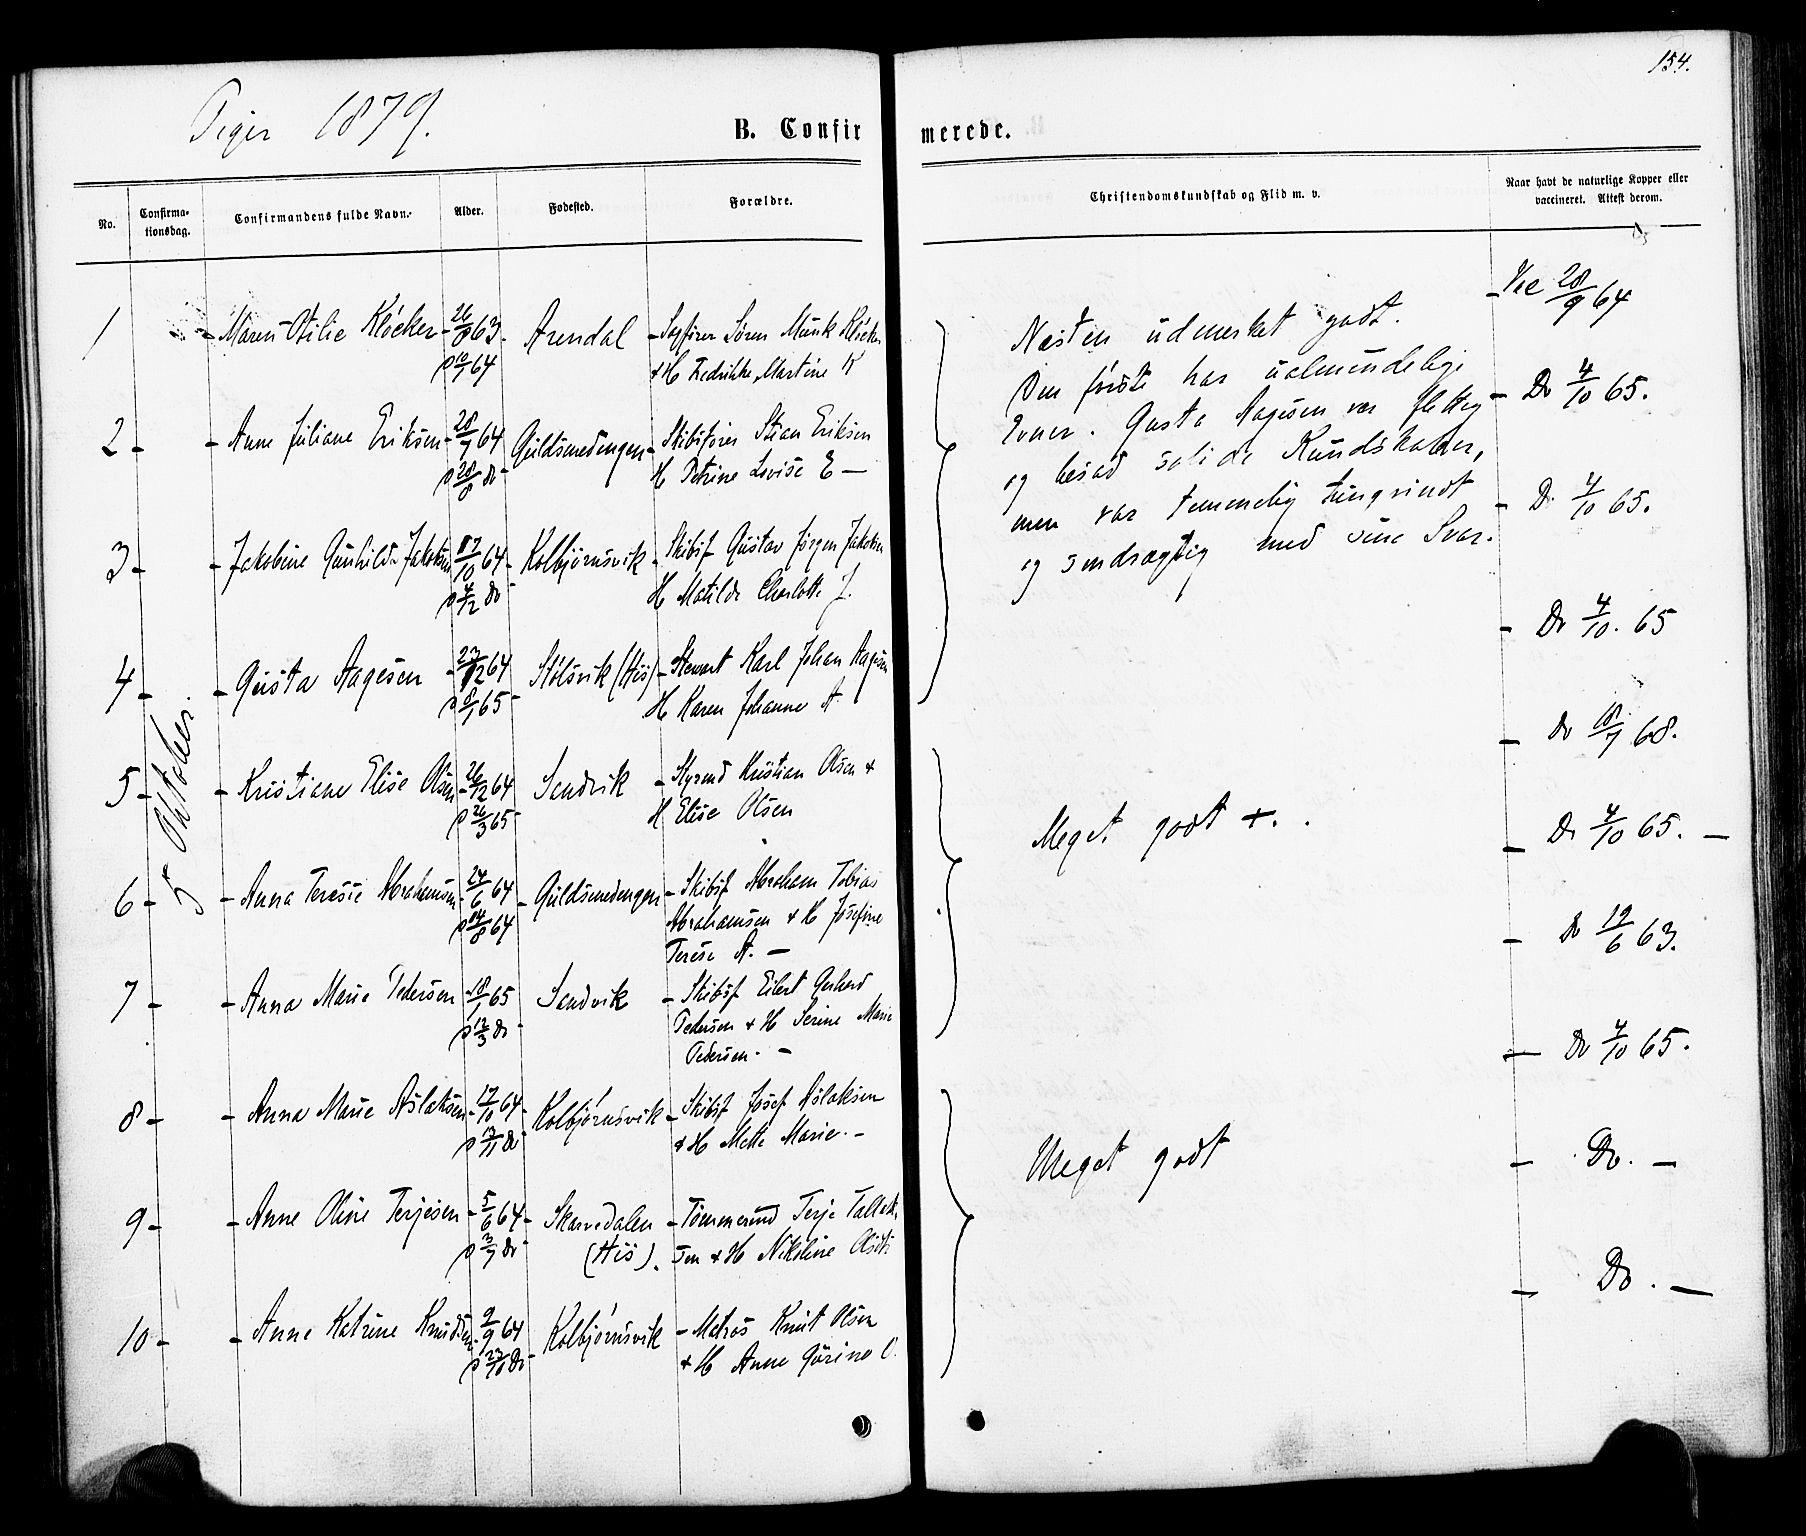 154.
Piger 1879.
B. Confirmerede.
No. Confirmationsdag. Confirmandens fulde Navn. Alder. Fødested. Forældre. Christendomskundskab og Flid m. v. Naar havt de naturlige Kopper eller vaccineret. Attest derom.
5 Oktober
1 - Maren Otilie Kløcker - 26/8 63. Arendal - Søren Munk Kløcker
D 10/1 64 + H Fredrikke Martine K
Vac 28/9 64
2 - - Anne Juliane Eriksen - 28/7 64 Guldsmedengen - Skibsfører Stian Eriksen
D 28/8 Do - H Petrine Lovise E -
- Do 4/10 65.
3 - - Jakobine Gunhilda Jakobsen 17/10 64 - Kolbjørnsvik - Skibsf Gustav Jørgen Jakobsen
D 4/12 Do H Matilde Charlotte J.
- Do 4/10 65.
4 - - Gusta Aagesen - 23/12 64 - Stølsvik (Hiis) - Stewart Karl Johan Aagesen
D 8/1 65 - H Karen Johanne A.
- Do 4/10. 65
Næsten udmerket godt.
Den første har ualmindelige
Evner. Gusta Aagesen var flittig
og besad solide Kundskaber,
men var temmelig tungvindt
og sendrægtig med sine Svar.
5 - - Kristiane Elise Olsen - 26/12 64 Sandvik - Styrmd Kristian Olsen +
D 26/3 65 - H Elise Olsen
- Do 18/7 68.
6 - - Anna Teresie Abrahamsen 24/6 64 - Guldsmedengen - Skibsf Abraham Tobias
D 14/8 64 Abrahamsen + H Josefine
Terese A. -
Meget godt +.
- Do 4/10 65. -
7 - - Anna Marie Pedersen - 18/1 65 Sandvik - Skibsf Eilert Gerhard
D 12/3 Do - Pedersen + H Serine Marie
Pedersen. -
- Do 19/6 63.
8 - - Anna Marie Aslaksen - 17/10 64 - Kolbjørnsvik - Skibsf Josef Aslaksen
D 13/11 Do + H Mette Marie. -
- Do 4/10 65.
9 - - Anne Oline Terjesen - 5/6 64 - Skarvedalen - Tømmermd Terje Tallak
D 3/7 Do - (Hiis). sen + H Nikoline
Meget godt
- Do. -
10 - - Anne Katrine Knudsen 9/9 64 Kolbjørnsvik - Matros Knut Olsen
D 23/10 Do - + H Anne Gurine O.
- Do. -